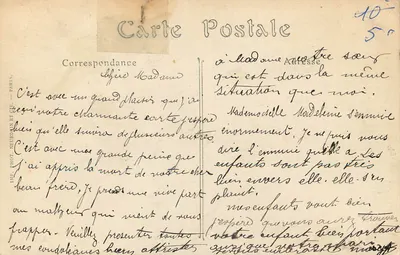 10
5
Carte Postale
Correspondance
Adresse
Chère Madame
C'est avec un grand plaisir que j'ai
reçu votre charmante carte j'espère
bien qu'elle suivra de plusieurs autres
C'est avec une grande peine que
j'ai appris la mort de votre cher
beau frère, je prends une vive part
au malheur qui vient de vous
frapper. Veuillez presenter toutes
mes condoléances bien attristées
à Madame votre sœur
qui est dans la même
situation que moi.
Mademoiselle Madeleine s'ennuie
enormement. Je ne puis vous
dire l'ennuie qu'elle a Les
enfants sont pas très
bien envers elle. elle s'en
plaint.
mes enfants vont bien
j'espère que vous aurez trouver
votre enfant bien portant
ainsi que votre